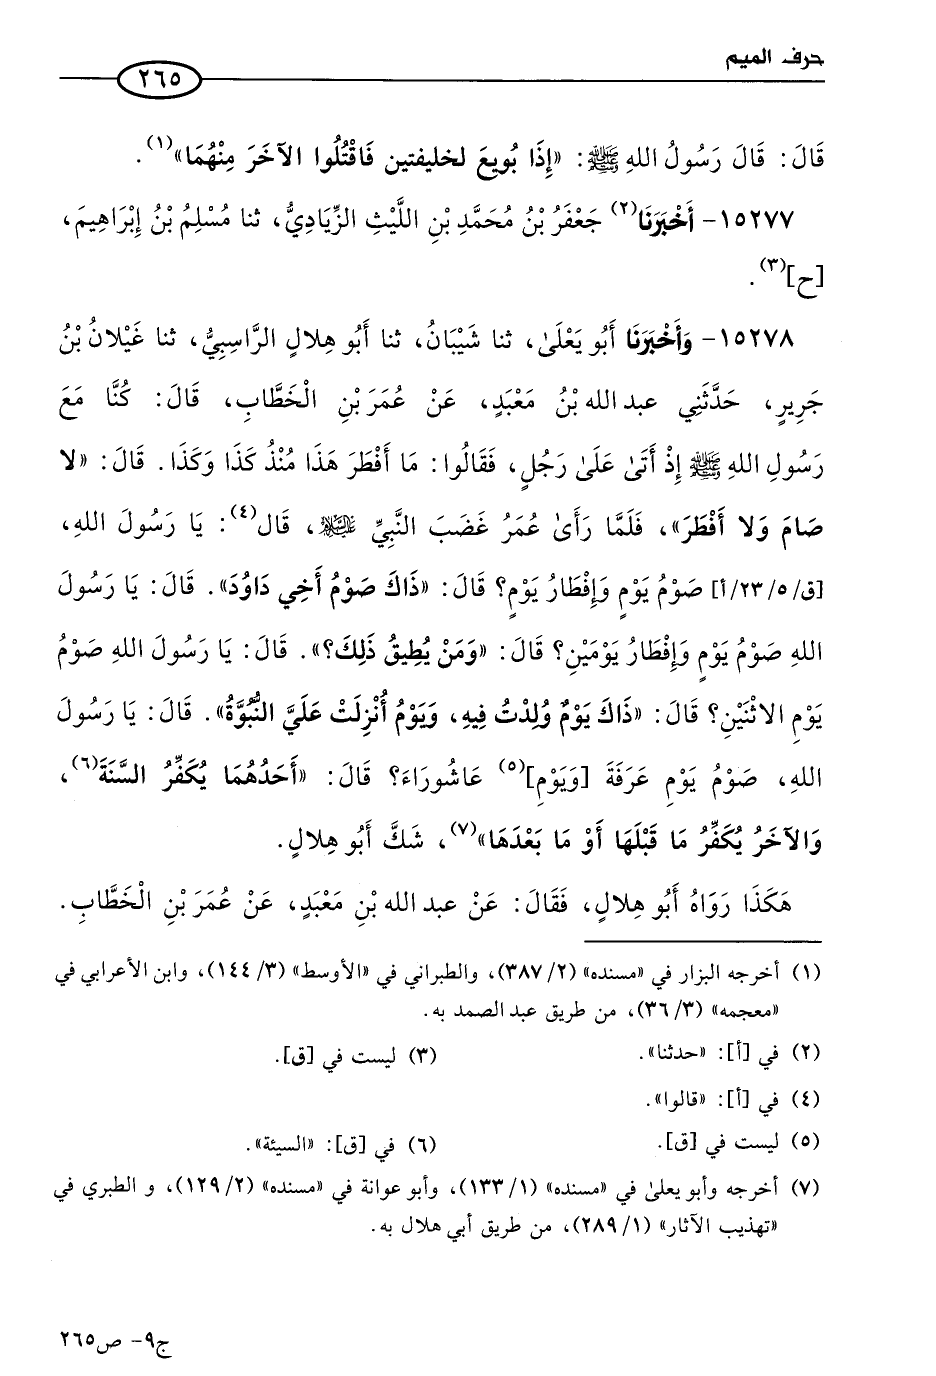 حرف الميم
٢٦٥
قَالَ: قَالَ رَسُولُ اللهِ ﷺ: «إِذَا بُويِعَ لخليفتين فَاقْتُلُوا الآخَرَ مِنْهُمَا»(١).
١٥٢٧٧- أَخْبَرَنَا(٢) جَعْفَرُ بْنُ مُحَمَّدِ بْنِ اللَّيْثِ الزِّيَادِيُّ، ثنا مُسْلِمُ بْنُ إِبْرَاهِيمَ،
[ح](٣).
١٥٢٧٨- وَأَخْبَرَنَا أَبُو يَعْلَىٰ، ثنا شَيْبَانُ، ثنا أَبُو هِلالٍ الرَّاسِبِيُّ، ثنا غَيْلانُ بْنُ
جَرِيرٍ، حَدَّثَنِي عبد الله بْنُ مَعْبَدٍ، عَنْ عُمَرَ بْنِ الْخَطَّابِ، قَالَ: كُنَّا مَعَ
رَسُولِ اللهِ ﷺ إِذْ أَتَىٰ عَلَىٰ رَجُلٍ، فَقَالُوا: مَا أَفْطَرَ هَذَا مُنْذُ كَذَا وَكَذَا. قَالَ: «لا
صَامَ وَلا أَفْطَرَ»، فَلَمَّا رَأَىٰ عُمَرُ غَضَبَ النَّبِيِّ عليه السلام، قَال(٤): يَا رَسُولَ اللهِ،
[ق/٢٣/٥/أ] صَوْمُ يَوْمٍ وَإِفْطَارُ يَوْمٍ؟ قَالَ: «ذَاكَ صَوْمُ أَخِي دَاوُدَ». قَالَ: يَا رَسُولَ
اللهِ صَوْمُ يَوْمٍ وَإِفْطَارُ يَوْمَيْنِ؟ قَالَ: «وَمَنْ يُطِيقُ ذَلِكَ؟». قَالَ: يَا رَسُولَ اللهِ صَوْمُ
يَوْمِ الاثْنَيْنِ؟ قَالَ: «ذَاكَ يَوْمٌ وُلِدْتُ فِيهِ، وَيَوْمُ أُنْزِلَتْ عَلَيَّ النُّبُوَّةُ». قَالَ: يَا رَسُولَ
اللهِ، صَوْمُ يَوْمِ عَرَفَةَ [وَيَوْمِ](٥) عَاشُورَاءَ؟ قَالَ: «أَحَدُهُمَا يُكَفِّرُ السَّنَةَ(٦)،
وَالآخَرُ يُكَفِّرُ مَا قَبْلَهَا أَوْ مَا بَعْدَهَا»(٧)، شَكَّ أَبُو هِلالٍ.
هَكَذَا رَوَاهُ أَبُو هِلالٍ، فَقَالَ: عَنْ عبد الله بْنِ مَعْبَدٍ، عَنْ عُمَرَ بْنِ الْخَطَّابِ.
(١) أخرجه البزار في «مسنده» (٣٨٧/٢)، والطبراني في «الأوسط» (١٤٤/٣)، وابن الأعرابي في
«معجمه» (٣٦/٣)، من طريق عبد الصمد به.
(٢) في [أ]: «حدثنا». (٣) ليست في [ق].
(٤) في [أ]: «قالوا».
(٥) ليست في [ق]. (٦) في [ق]: «السيئة».
(٧) أخرجه وأبو يعلىٰ في «مسنده» (١٣٣/١)، وأبو عوانة في «مسنده» (١٢٩/٢)، و الطبري في
«تهذيب الآثار» (٢٨٩/١)، من طريق أبي هلال به.
ج٩- ص٢٦٥